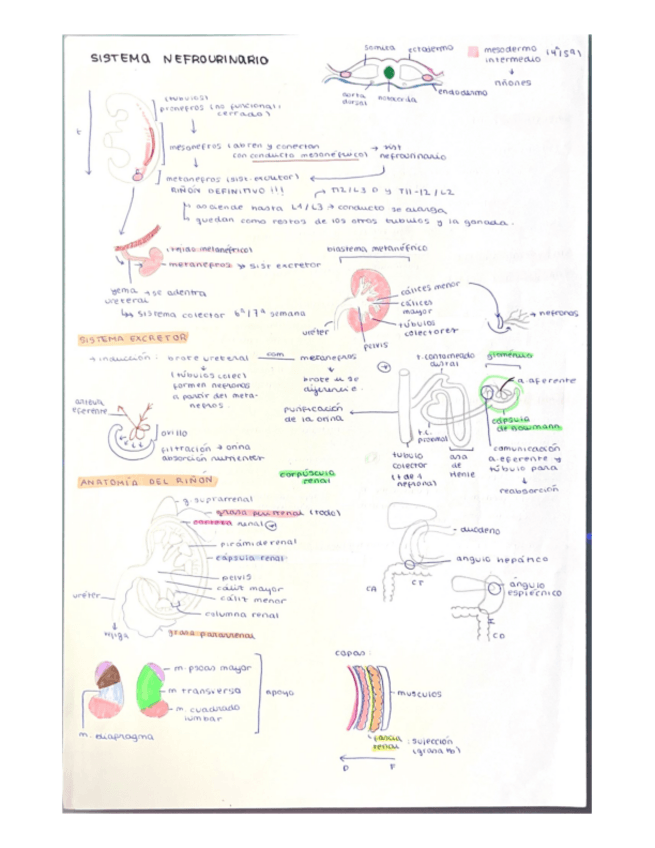 SISTEMA NEFROURINARIO
somita
ectodermo
mesodermo
intermedio
riñones
aorta
dorsal
notocorda
endodermo
(tubulos)
pronefros (no funcional:
cerrados)
mesonefros (abren y conectan
con conducto mesonéfrico)
→ sist
nefrourinario
metanefros (sist. excretor)
RIÑÓN DEFINITIVO !!!
→ T12/L3 D y T11-12/L2
asciende hasta L1/L3 → conducto se alarga
quedan como restos de los otros tubulos y la gonada.
metanefros → sist excretor
yema → se adentra
ureteral
sistema colector 6ª/7ª semana
blastema metanéfrico
cálices menor
cálices
mayor
túbulos
colectores
uréter
pelvis
→ nefronas
SISTEMA EXCRETOR
→ inducción: brote ureteral
con
metanefros
(túbulos colec)
formen nefronas
a partir del meta-
nefros.
brote u se
diferencie.
arteria
eferente
ovillo
filtración → orina
absorción nutrientes
t. contorneado
distal
glomérulo
a. aferente
purificación
de la orina
t.c.
proximal
cápsula
de bowmann
tubulo
colector
(+ de 1
nefrona)
asa
de
Henle
comunicación
a. eferente y
túbulo para
reabsorción
corpúsculo
renal
ANATOMÍA DEL RIÑÓN
g. suprarrenal
grasa perirrenal (todo)
corteza renal
pirámide renal
cápsula renal
pelvis
cáliz mayor
cáliz menor
columna renal
uréter
vejiga
grasa pararrenal
duodeno
angulo hepático
CA
CT
ángulo
esplécnico
CD
m. psoas mayor
m. transverso
m. cuadrado
lumbar
apoyo
m. diafragma
capas:
musculos
fascia
renal
: sujección
P